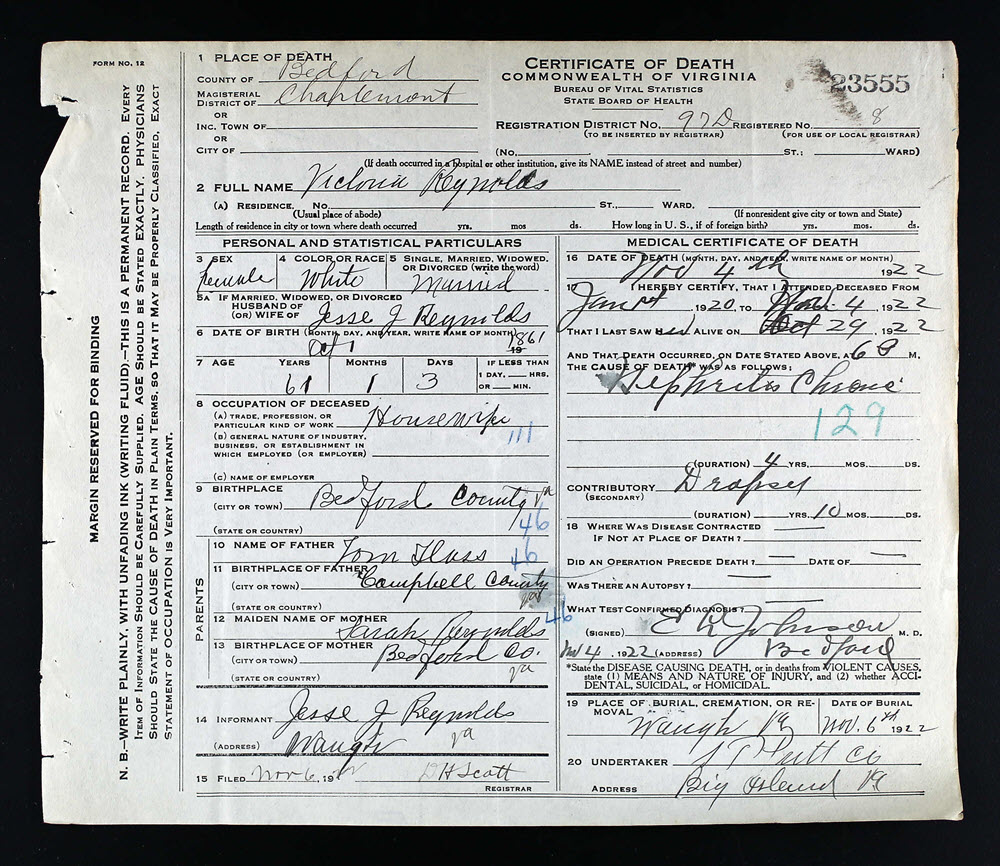 FORM NO. 12
MARGIN RESERVED FOR BINDING
N. B.—WRITE PLAINLY, WITH UNFADING INK (WRITING FLUID),—THIS IS A PERMANENT RECORD. EVERY
ITEM OF INFORMATION SHOULD BE CAREFULLY SUPPLIED. AGE SHOULD BE STATED EXACTLY. PHYSICIANS
SHOULD STATE THE CAUSE OF DEATH IN PLAIN TERMS, SO THAT IT MAY BE PROPERLY CLASSIFIED. EXACT
STATEMENT OF OCCUPATION IS VERY IMPORTANT.
1 PLACE OF DEATH
COUNTY OF Bedford
MAGISTERIAL DISTRICT OF Charlemont
OR
INC. TOWN OF
OR
CITY OF
CERTIFICATE OF DEATH
COMMONWEALTH OF VIRGINIA
BUREAU OF VITAL STATISTICS
STATE BOARD OF HEALTH
23555
REGISTRATION DISTRICT NO. 97D REGISTERED NO. 8
(TO BE INSERTED BY REGISTRAR) (FOR USE OF LOCAL REGISTRAR)
(NO. ST.; WARD)
(If death occurred in a hospital or other institution, give its NAME instead of street and number)
2 FULL NAME Victoria Reynolds
(A) RESIDENCE. NO. ST., WARD.
(Usual place of abode) (If nonresident give city or town and State)
Length of residence in city or town where death occurred yrs. mos ds. How long in U. S., if of foreign birth? yrs. mos ds.
PERSONAL AND STATISTICAL PARTICULARS
3 SEX Female
4 COLOR OR RACE White
5 SINGLE, MARRIED, WIDOWED, OR DIVORCED (write the word) Married
5A IF MARRIED, WIDOWED, OR DIVORCED
HUSBAND OF
(OR) WIFE OF Jesse J Reynolds
6 DATE OF BIRTH (MONTH, DAY, AND YEAR, WRITE NAME OF MONTH)
Oct 1 1861
19
7 AGE YEARS MONTHS DAYS IF LESS THAN
61 1 3 1 DAY,— HRS.
OR — MIN.
8 OCCUPATION OF DECEASED
(A) TRADE, PROFESSION, OR
PARTICULAR KIND OF WORK Housewife
(B) GENERAL NATURE OF INDUSTRY,
BUSINESS, OR ESTABLISHMENT IN
WHICH EMPLOYED (OR EMPLOYER)
111
(C) NAME OF EMPLOYER
9 BIRTHPLACE
(CITY OR TOWN) Bedford County Va
(STATE OR COUNTRY) 46
PARENTS
10 NAME OF FATHER Tom 46
11 BIRTHPLACE OF FATHER
(CITY OR TOWN) Campbell County
(STATE OR COUNTRY) Va
46
12 MAIDEN NAME OF MOTHER Sarah Reynolds
13 BIRTHPLACE OF MOTHER
(CITY OR TOWN) Bedford Co.
(STATE OR COUNTRY) Va
14 INFORMANT Jesse J Reynolds
(ADDRESS) Waugh Va
15 FILED Nov 6, 19 D H Scott
REGISTRAR
MEDICAL CERTIFICATE OF DEATH
16 DATE OF DEATH (MONTH, DAY, AND YEAR, WRITE NAME OF MONTH)
Nov 4th 1922
17 I HEREBY CERTIFY, THAT I ATTENDED DECEASED FROM
Jan 1st, 1920, TO Nov. 4, 1922
THAT I LAST SAW HER ALIVE ON Oct 29, 1922
AND THAT DEATH OCCURRED, ON DATE STATED ABOVE, AT 6 M.
THE CAUSE OF DEATH* WAS AS FOLLOWS:
Nephritis Chronic
129
(DURATION) 4 YRS. MOS. DS.
CONTRIBUTORY Dropsy
(SECONDARY)
(DURATION) YRS. 10 MOS. DS.
18 WHERE WAS DISEASE CONTRACTED
IF NOT AT PLACE OF DEATH?
DID AN OPERATION PRECEDE DEATH? DATE OF
WAS THERE AN AUTOPSY?
WHAT TEST CONFIRMED DIAGNOSIS?
(SIGNED) Johnson M. D.
Nov 4, 1922 (ADDRESS) Bedford
*State the DISEASE CAUSING DEATH, or in deaths from VIOLENT CAUSES,
state (1) MEANS AND NATURE OF INJURY, and (2) whether ACCI-
DENTAL, SUICIDAL, or HOMICIDAL.
19 PLACE OF BURIAL, CREMATION, OR RE-
MOVAL Waugh Va
DATE OF BURIAL
Nov. 6th 1922
20 UNDERTAKER Co
ADDRESS Big Island Va